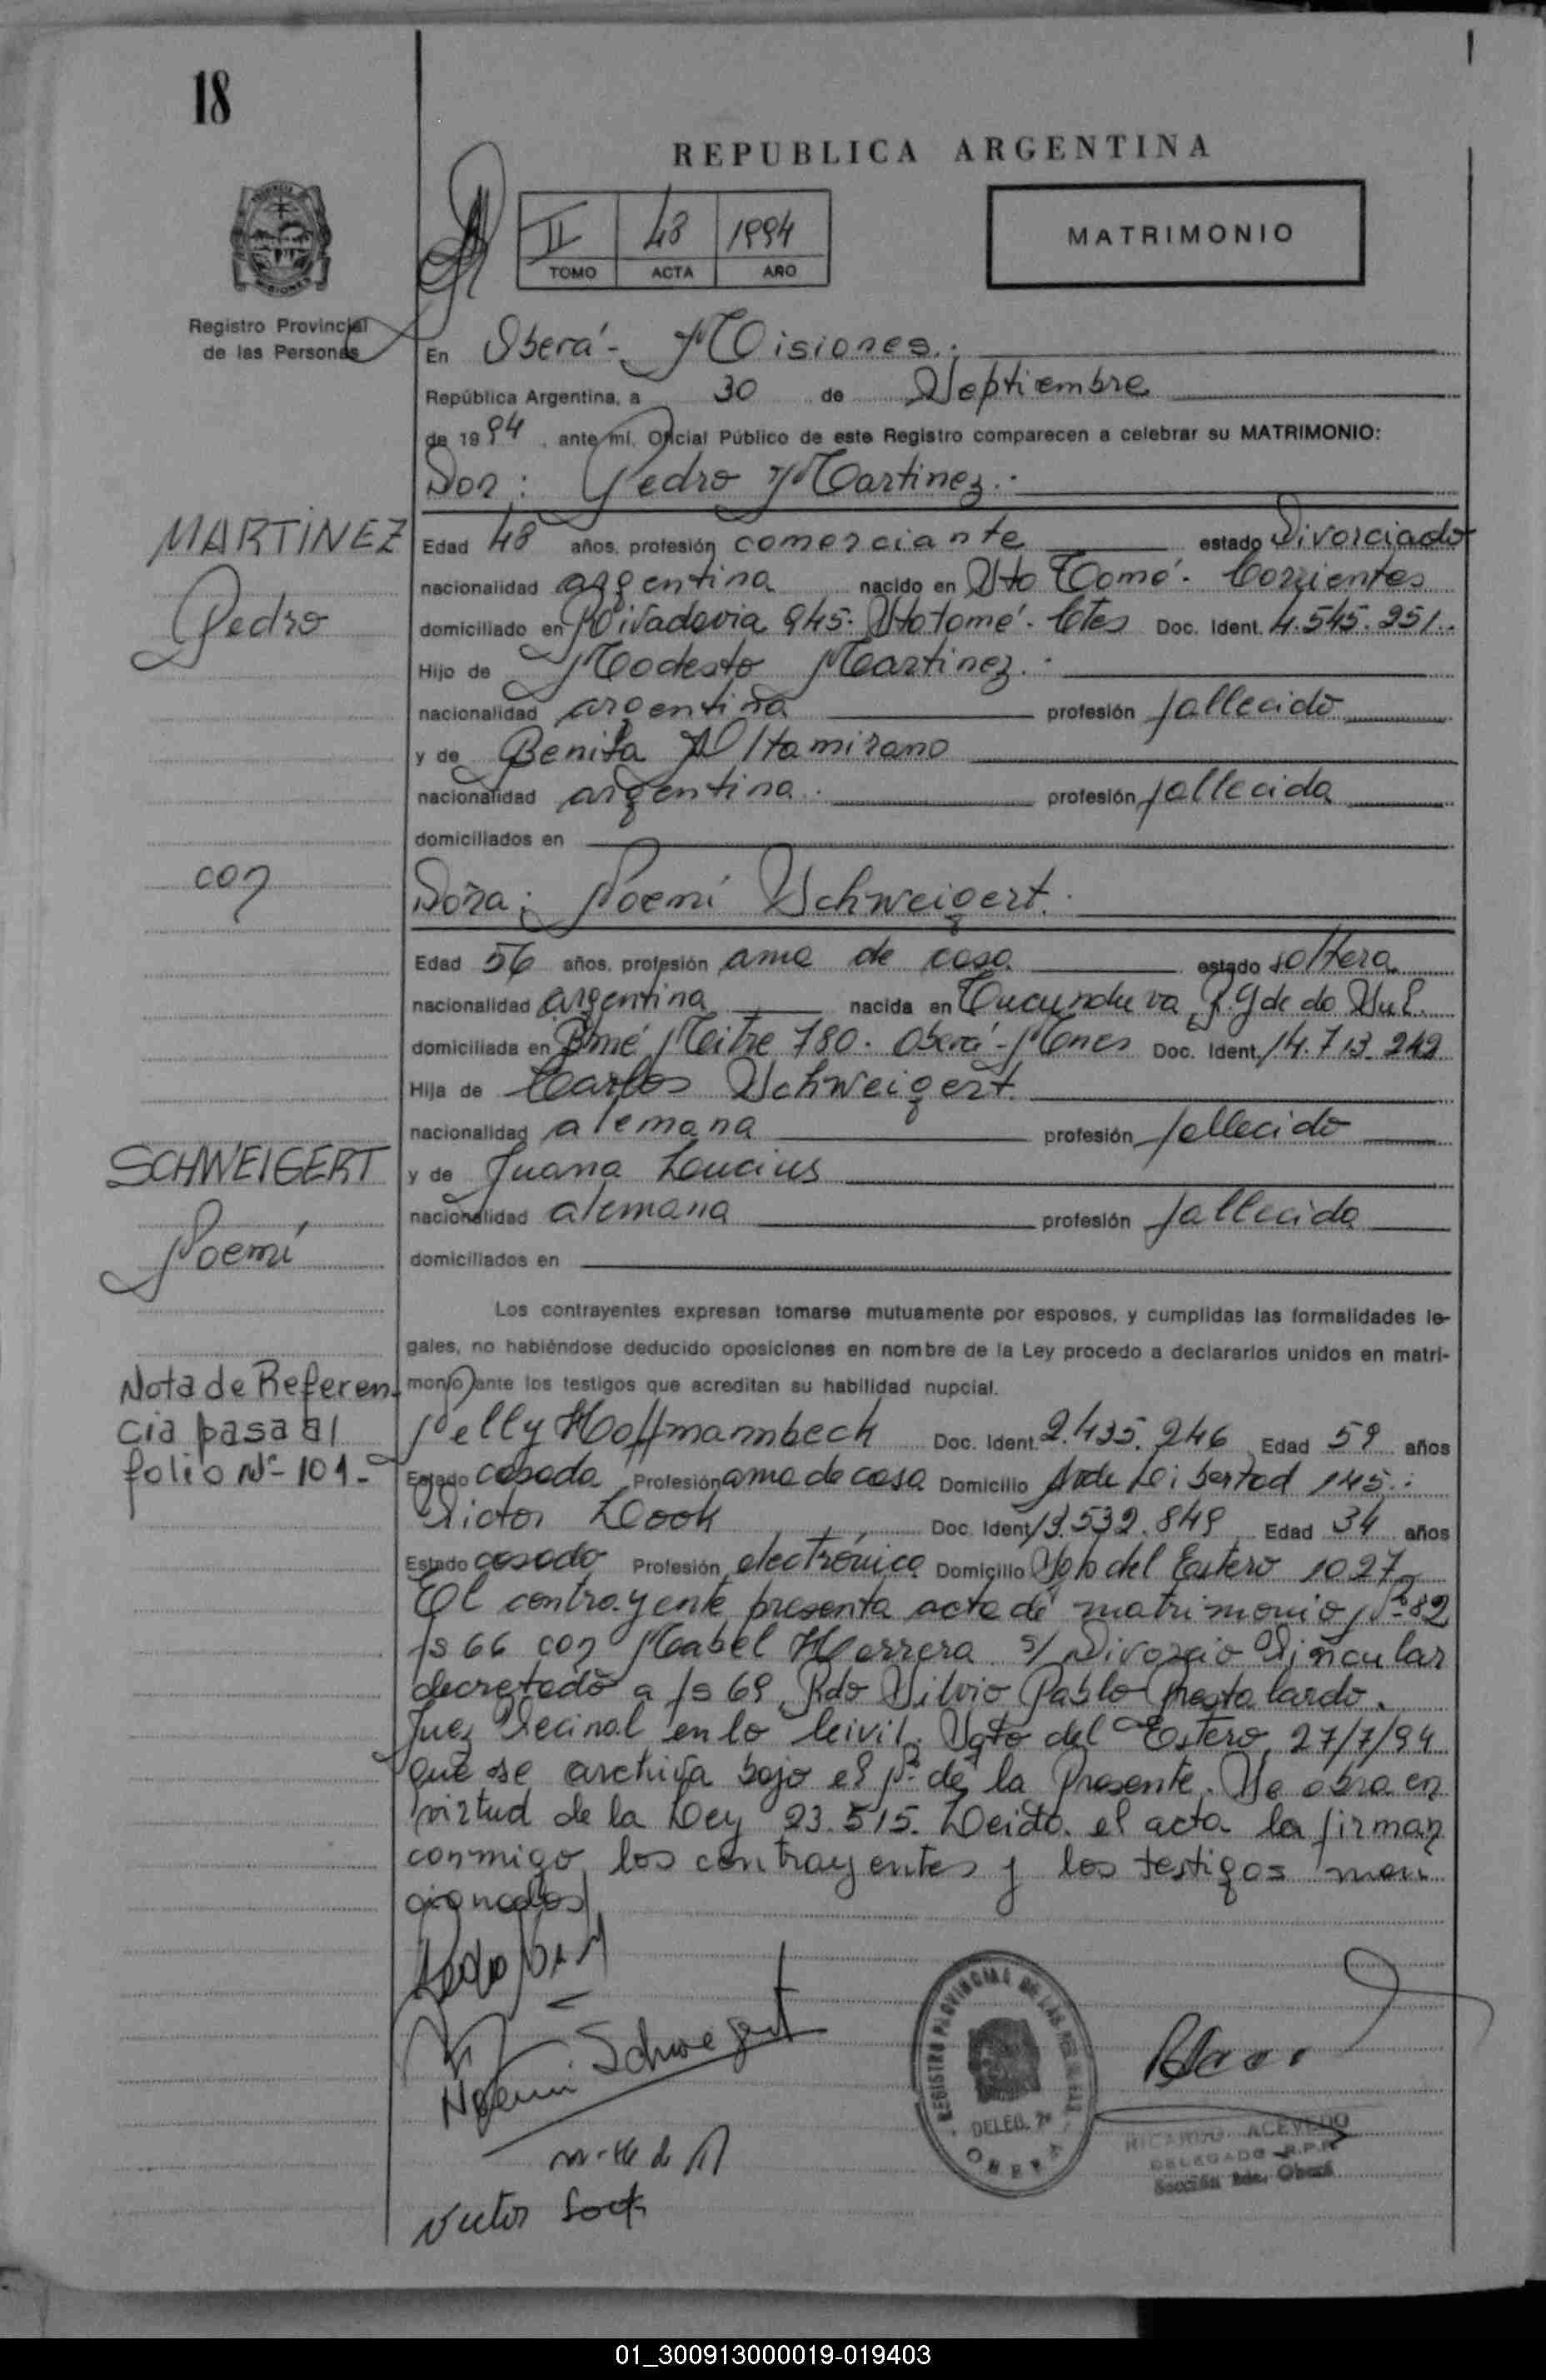 18
REPUBLICA ARGENTINA
II 48 1994
TOMO ACTA AÑO
MATRIMONIO
Registro Provincial
de las Personas
En Oberá - Misiones.-
República Argentina, a 30 de Septiembre
de 1994, ante mí, Oficial Público de este Registro comparecen a celebrar su MATRIMONIO:
Don: Pedro Martinez.-
MARTINEZ
Pedro
Edad 48 años, profesión comerciante estado Divorciado
nacionalidad argentina nacido en Sto Tomé - Corrientes
domiciliado en Rivadavia 945. Sto tomé - Ctes Doc. Ident. 4.545.251.
Hijo de Modesto Martinez.-
nacionalidad argentina profesión fallecido
y de Benita Altamirano
nacionalidad argentina. profesión fallecida
domiciliados en
con
Doña: Noemí Schweigert.
Edad 56 años, profesión ama de casa estado soltera
nacionalidad argentina nacida en Tucunduva, R. Gde do Sul.
domiciliada en Bmé Mitre 780. Oberá - Mnes Doc. Ident. 14.713.242
Hija de Carlos Schweigert.
nacionalidad alemana profesión fallecido
SCHWEIGERT
Noemí
y de Juana Loucius
nacionalidad alemana profesión fallecida
domiciliados en
Los contrayentes expresan tomarse mutuamente por esposos, y cumplidas las formalidades le-
gales, no habiéndose deducido oposiciones en nombre de la Ley procedo a declararlos unidos en matri-
monio ante los testigos que acreditan su habilidad nupcial.
Nota de Referen-
cia pasa al
folio Nº 101.-
Nelly Hoffmannbeck Doc. Ident. 2.435.246 Edad 59 años
Estado casada Profesión ama de casa Domicilio Avda Libertad 145.-
Victor Look Doc. Ident. 13.532.849 Edad 34 años
Estado casado Profesión electrónico Domicilio Sgo del Estero 1027
El contrayente presenta acta de matrimonio Nº 82
fs 66 con Mabel Herrera s/ Divorcio Vincular
decretado a fs 69, Rdo Silvio Pablo
Juez en lo Civil. Sgto del Estero, 27/7/94
que se archiva bajo el Nº de la Presente. Se obra en
virtud de la Ley 23.515. Leida el acta la firman
conmigo, los contrayentes y los testigos men
cionados.
Noemi Schweigert
Victor Look
REGISTRO PROVINCIAL DE LAS PERSONAS
DELEG. 2ª
OBERA
RICARDO ACEVEDO
DELEGADO R.P.P.
Sección 2da. Oberá
01_300913000019-019403